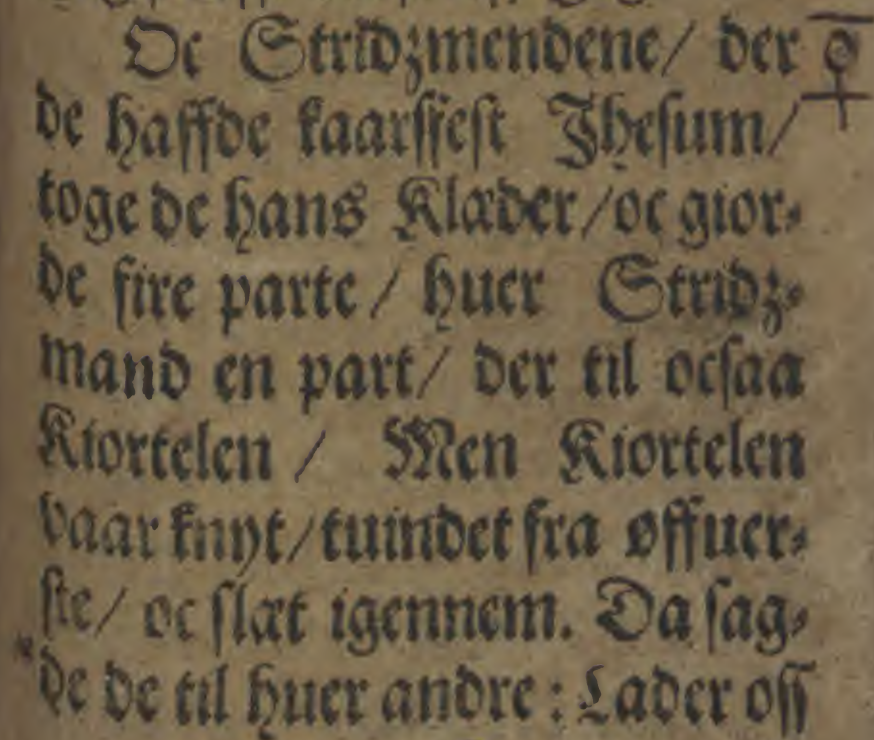 Oc Stridzmendene/ der
de haffde kaarsfest Jhesum/
toge de hans Klæder/oc gior⸗
de fire parte/ huer Stridz⸗
mand en part/ der til ocsaa
Kiortelen / Men Kiortelen
vaar knyt/tuindet fra øffuer⸗
ste/ oc slæt igennem. Da sag⸗
de de til huer andre: Lader oss